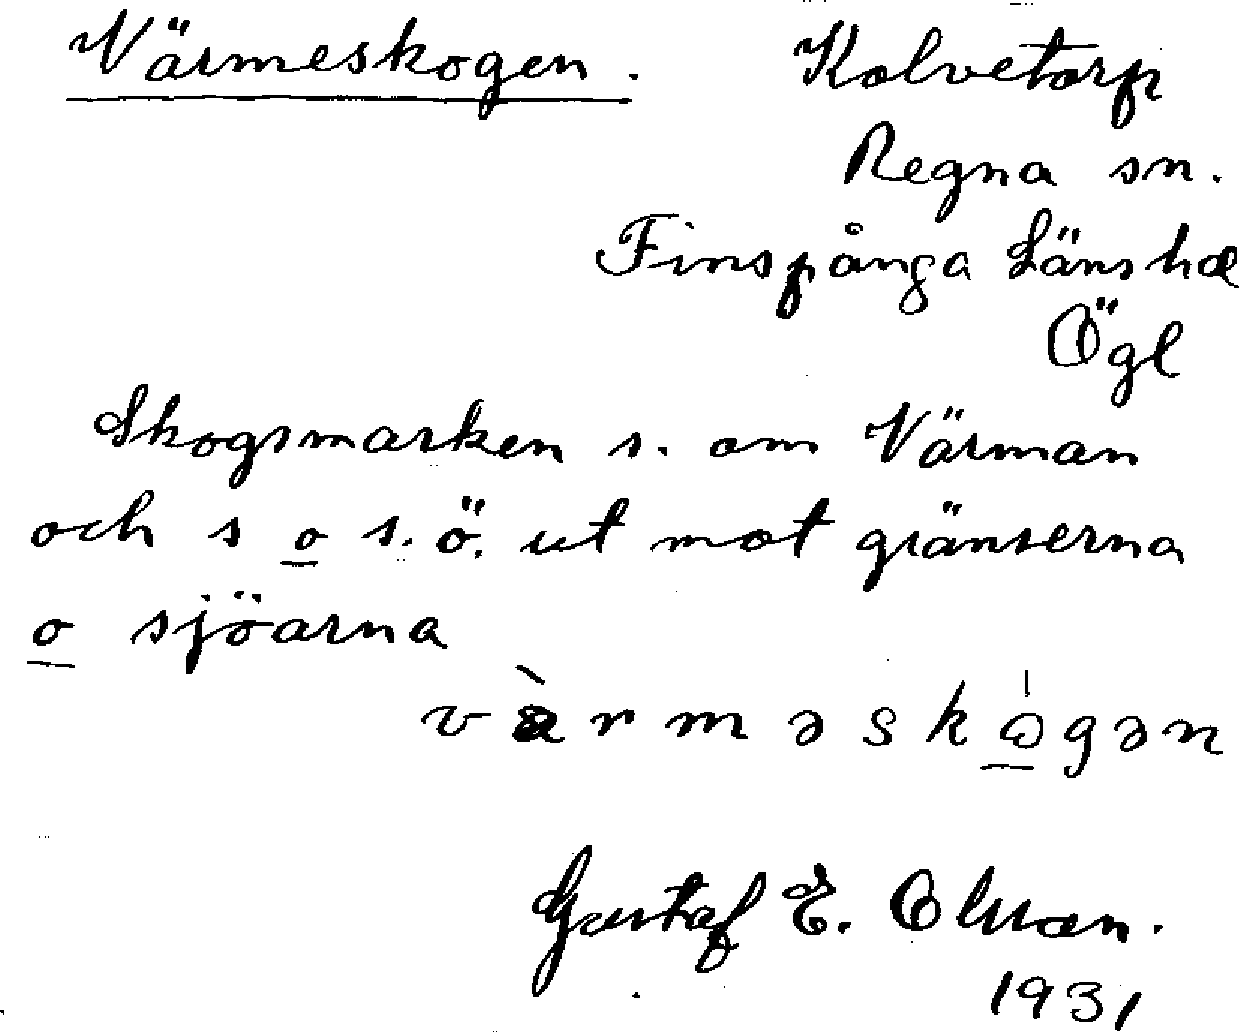 Värmeskogen. Kolvetorp
Regna sn.
Finspånga Länshd
Ögl
Skogsmarken s. om Värman
och s o s.ö. ut mot gränserna
o sjöarna
Gustaf E. Olsson.
1931